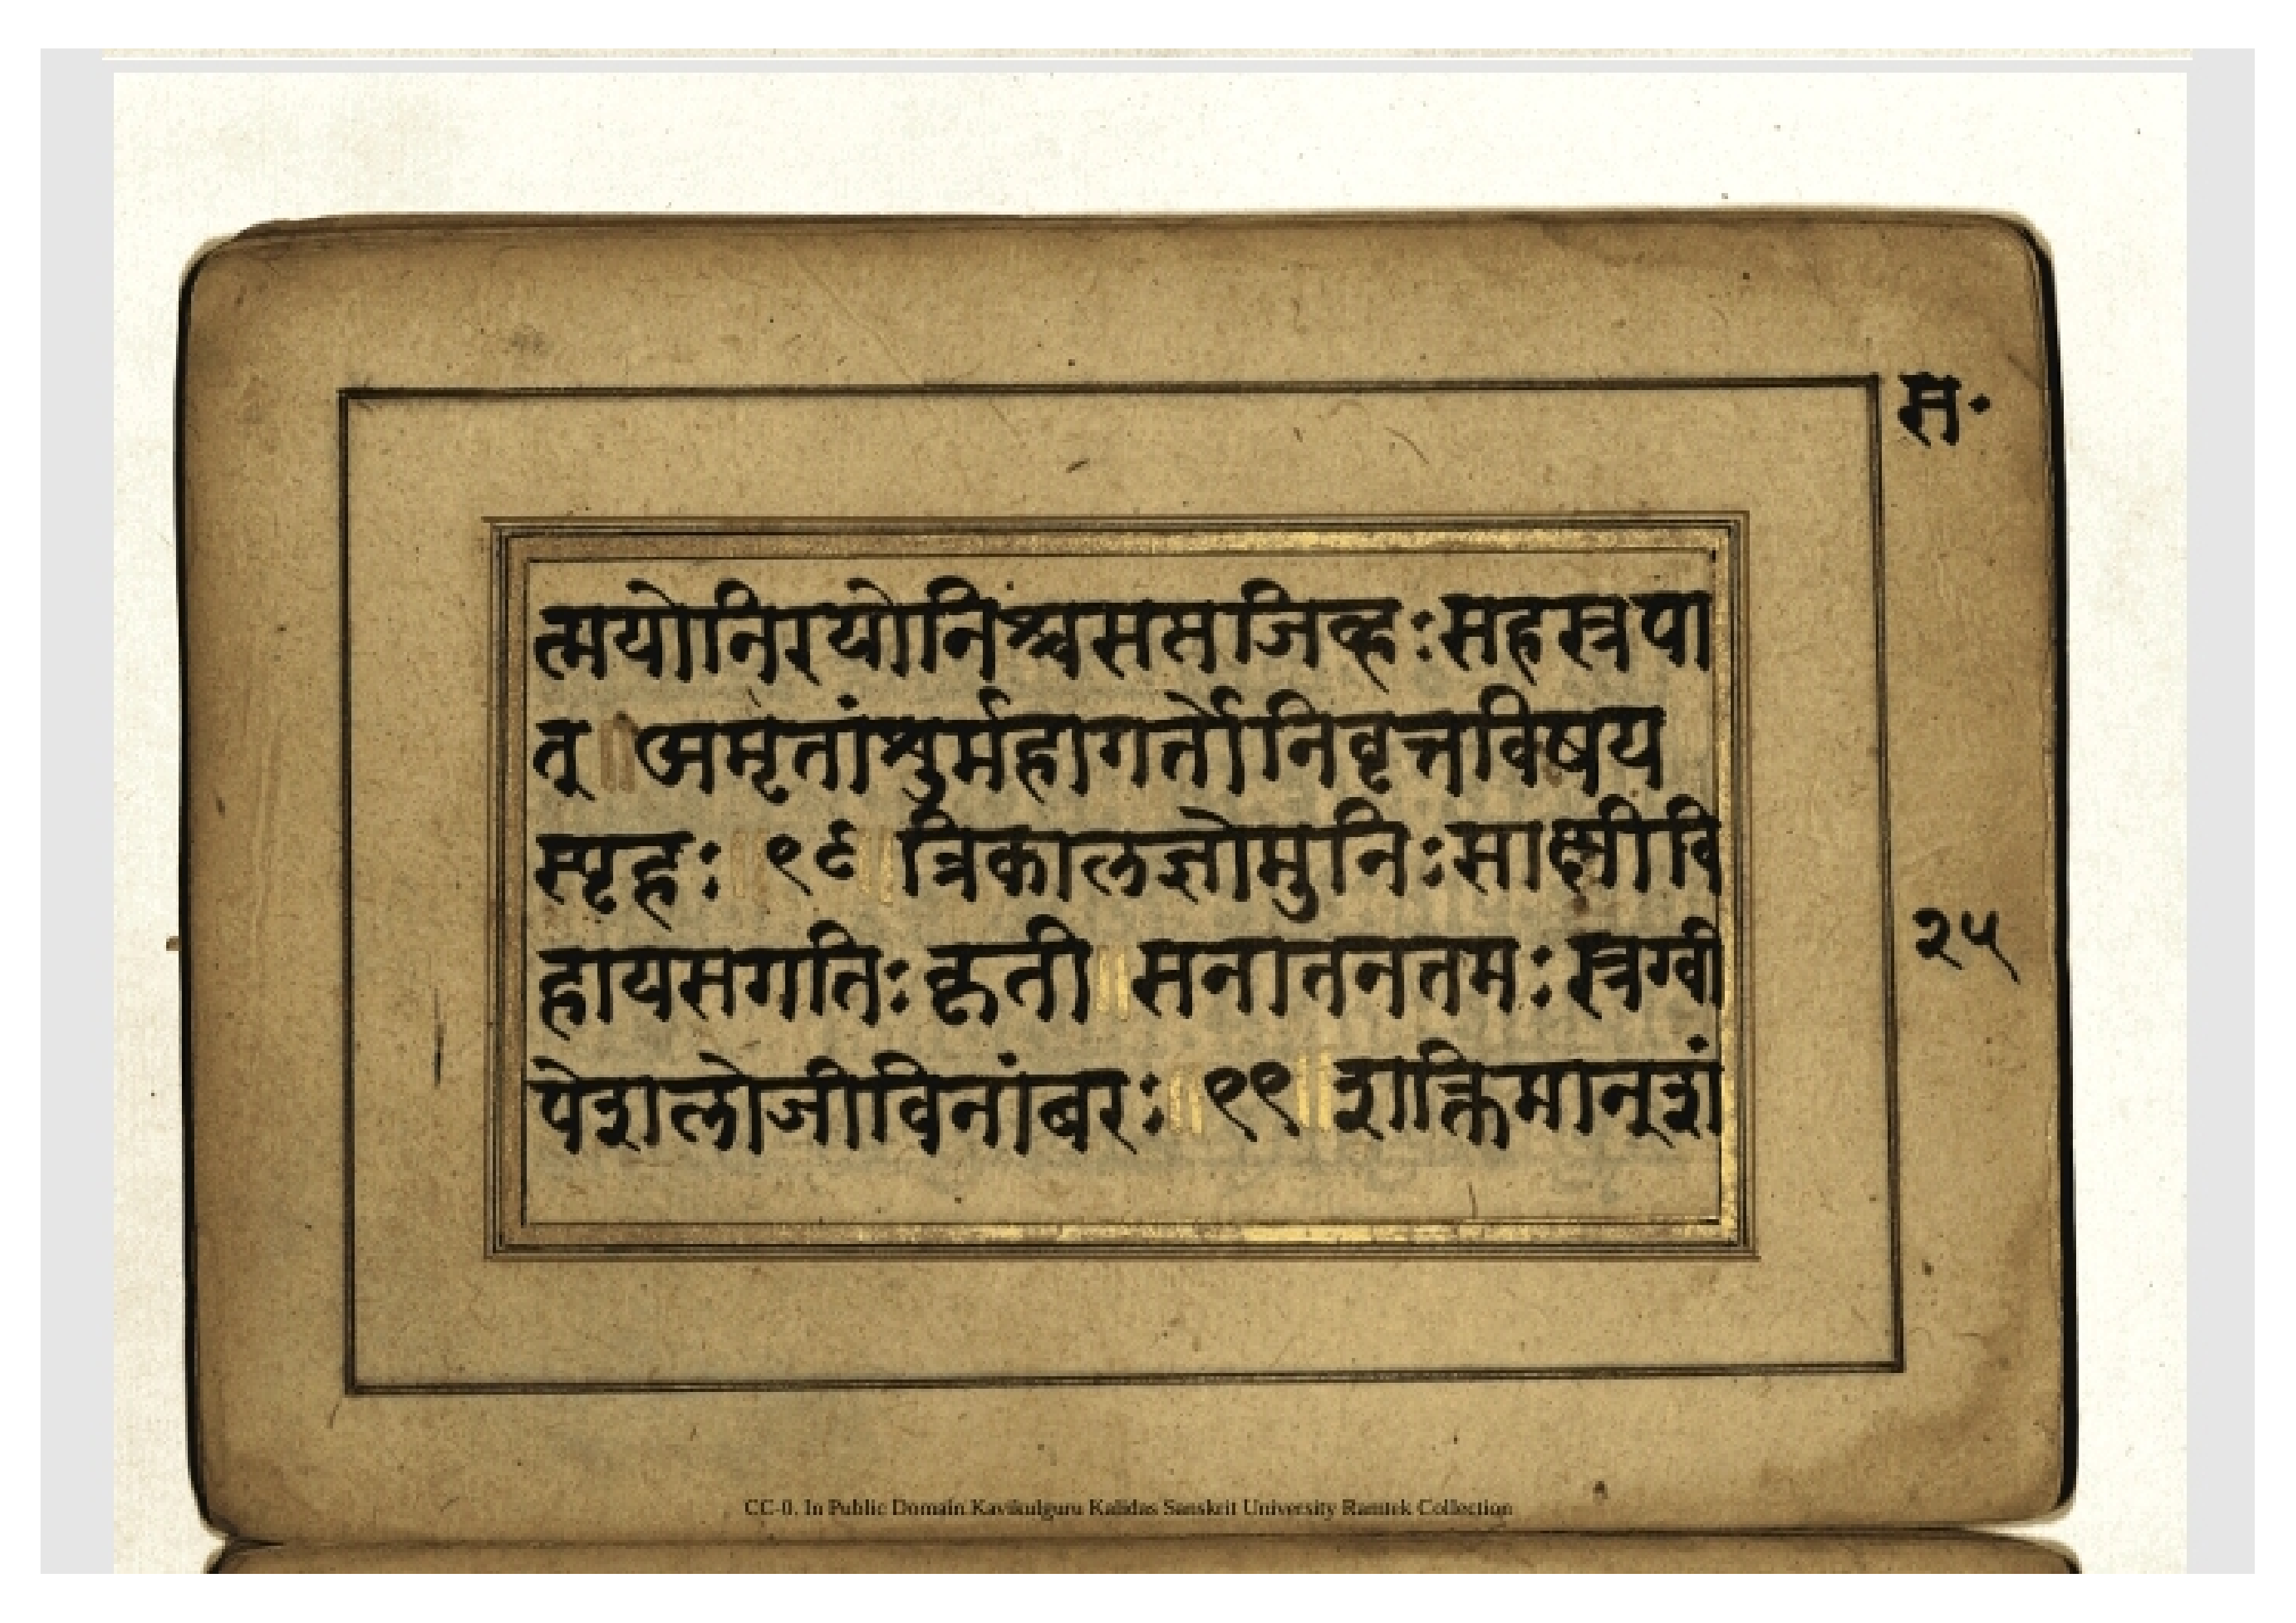 स॰
त्मयोनिरयोनिश्चसप्तजिव्हःसहस्त्रपा
त् ॥ अमृतांशुर्महागर्त्तोनिवृत्तविषय
स्पृहः ॥ ९८ ॥ त्रिकालज्ञोमुनिःसाक्षीवि
हायसगतिःकृती ॥ सनातनतमःस्त्रग्वी
२५
पेशलोजीविनांबरः ॥ ९९ ॥ शक्तिमान्शं
CC-0. In Public Domain Kavikulguru Kalidas Sanskrit University Ramtek Collection